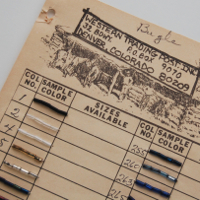 Bugle
WESTERN TRADING POST, INC.
32 BDWY. P.O. BOX 9070
DENVER, COLORADO 80209
COL NO. SAMPLE COLOR SIZES AVAILABLE COL NO. SAMPLE COLOR
1
2
4
5
255
260
263
265